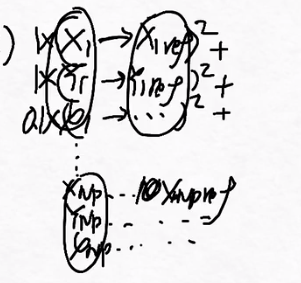 ) 1x(X₁ → X₁ref)² +
1x(Y₁ → Y₁ref)² +
0.1x(φ₁ → ...)² +
⋮
Xnp ... 10 Xnpref
Ynp ...
φnp ...